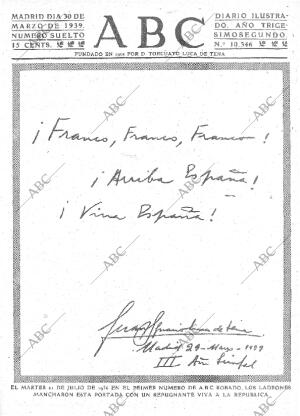 MADRID DIA 30 DE
MARZO DE 1939.
NUMERO SUELTO
15 CENTS.
ABC
DIARIO ILUSTRA-
DO. AÑO TRIGE-
SIMOSEGUNDO.
N.º 10.346
FUNDADO EN 1905 POR D. TORCUATO LUCA DE TENA
¡Franco, Franco, Franco!
¡Arriba España!
¡Viva España!
Juan Ignacio Luca de Tena
Madrid 29-Marzo-1939
III Año Triunfal
EL MARTES 21 DE JULIO DE 1936 EN EL PRIMER NUMERO DE A B C ROBADO, LOS LADRONES
MANCHARON ESTA PORTADA CON UN REPUGNANTE VIVA A LA REPUBLICA.